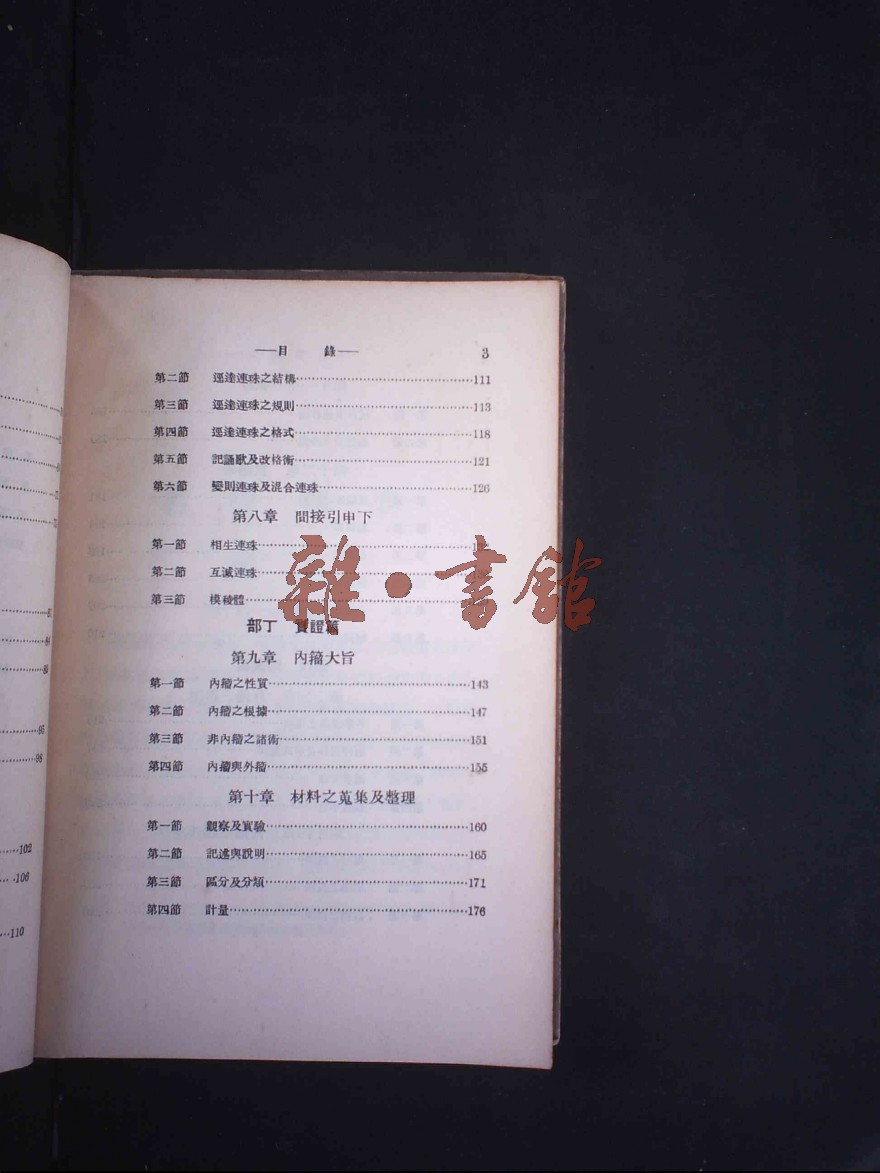 ——目　錄——　3
第二節　逕達連珠之結構……111
第三節　逕達連珠之規則……113
第四節　逕達連珠之格式……118
第五節　記誦歌及改格術……121
第六節　變則連珠及混合連珠……126
第八章　間接引申下
第一節　相生連珠……
第二節　互滅連珠……
第三節　模稜體……
部丁　實證篇
第九章　內籀大旨
第一節　內籀之性質……143
第二節　內籀之根據……147
第三節　非內籀之諸術……151
第四節　內籀與外籀……155
第十章　材料之蒐集及整理
第一節　觀察及實驗……160
第二節　記述與說明……165
第三節　區分及分類……171
第四節　計量……176
雜·書館
95
98
102
106
110